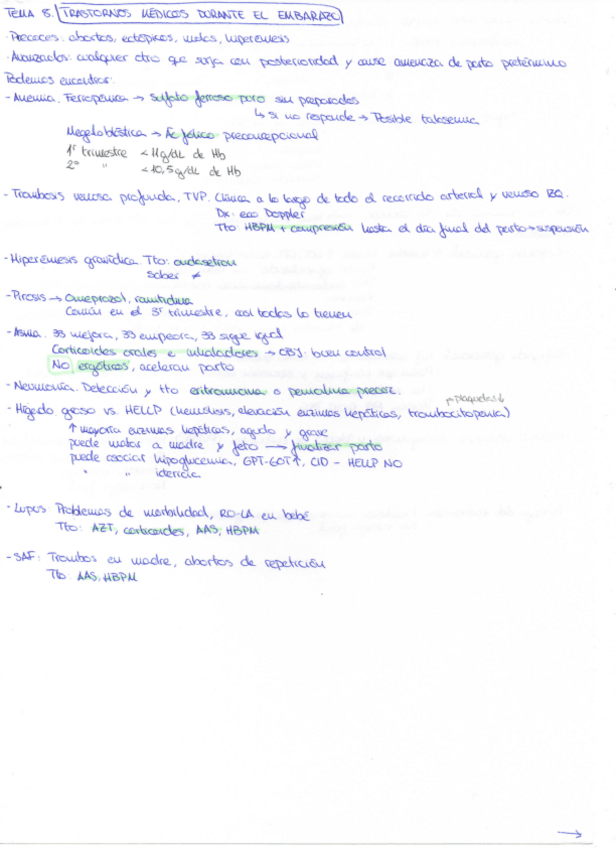 TEMA 8. TRASTORNOS MÉDICOS DURANTE EL EMBARAZO
· Precoces: abortos, ectópicos, molas, hiperémesis
· Avanzados: cualquier otro que surja con posterioridad y cause amenaza de parto pretérmino
Podemos encontrar:
- Anemia. Ferropénica → Sulfato ferroso puro sin preparados
↳ si no responde → Posible talasemia
Megaloblástica → Ác fólico preconcepcional
1er trimestre < 11g/dL de Hb
2º " < 10,5 g/dL de Hb
- Trombosis venosa profunda, TVP. Clínica a lo largo de todo el recorrido arterial y venoso
Dx: eco Doppler
Tto: HBPM + compresión hasta el día final del parto → suspensión
- Hiperémesis gravídica. Tto: ondasetron
Saber ≠
- Pirosis → Omeprazol, ranitidina
Común en el 3er trimestre, casi todas lo tienen
- Asma. 33 mejora, 33 empeora, 33 sigue igual
Corticoides orales e inhaladores → OBJ: buen control
No ergóticos, aceleran parto
- Neumonía. Detección y tto eritromicina o penicilina precoz.
- Hígado graso vs. HELLP (hemólisis, elevación enzimas hepáticas, trombocitopenia)
plaquetas ↓
↑ mayoría enzimas hepáticas, agudo y grave
puede matar a madre y feto → finalizar parto
puede asociar hipoglucemia, GPT-GOT↑, CID - HELLP NO
" " ictericia
- Lupus. Problemas de morbilidad, RO-LA en bebé
Tto: AZT, corticoides, AAS, HBPM
- SAF: Trombos en madre, abortos de repetición
Tto AAS, HBPM
→